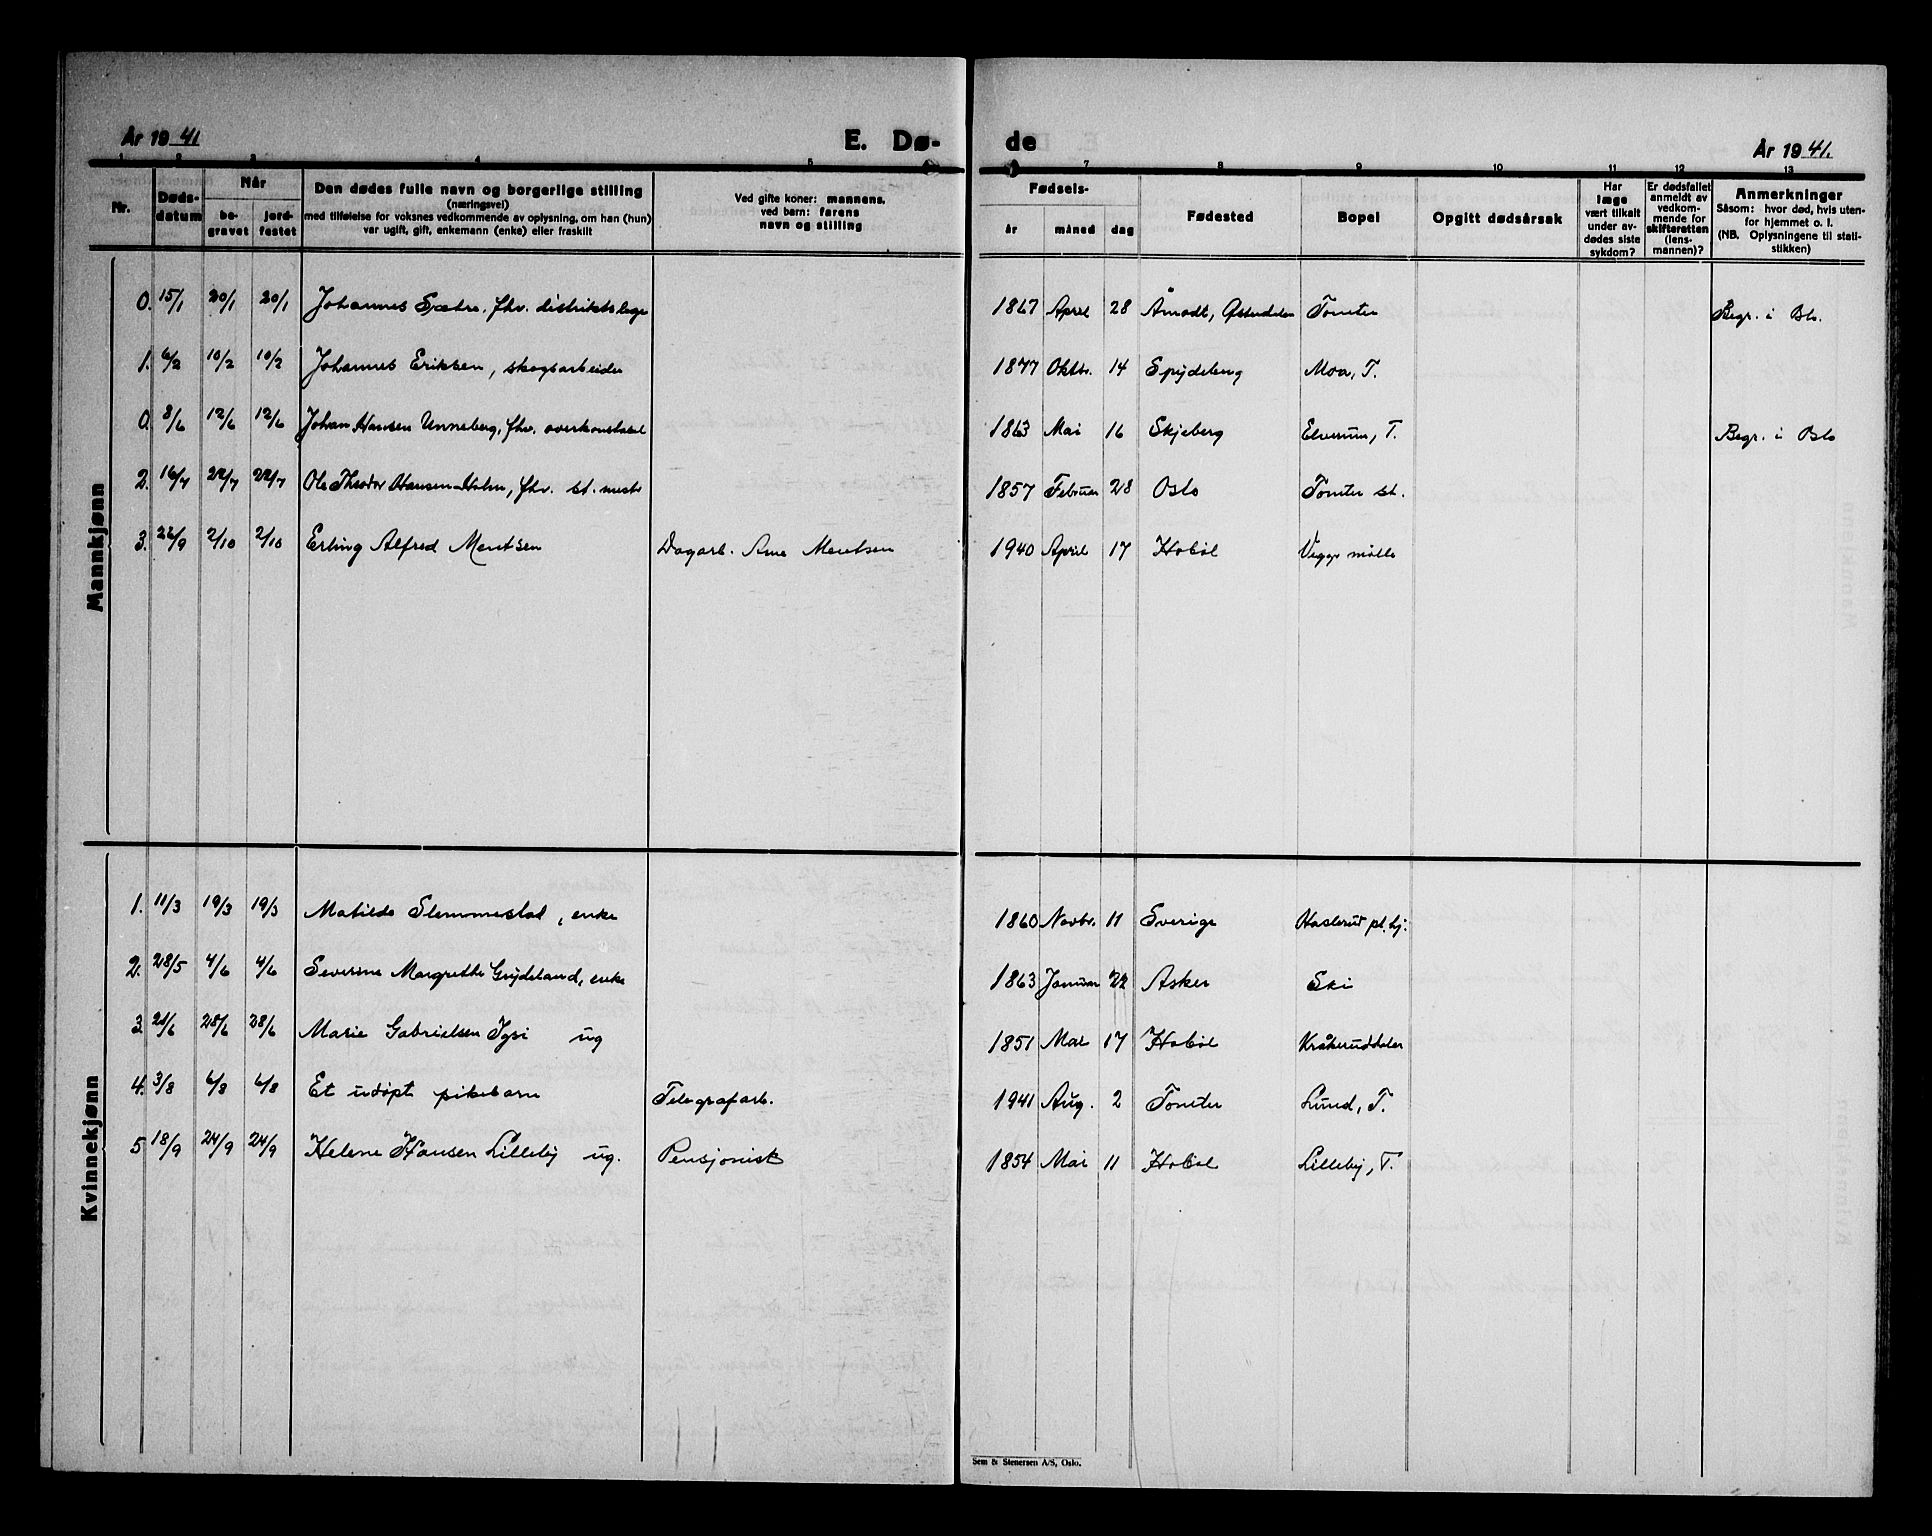 År 1941
E. Dø-
de
År 1941.
1 2 3 4 5 7 8 9 10 11 12 13
Nr.
Døds-
datum
Når
be-
gravet
jord-
festet
Den dødes fulle navn og borgerlige stilling
(næringsvei)
med tilføielse for voksnes vedkommende av oplysning, om han (hun)
var ugift, gift, enkemann (enke) eller fraskilt
Ved gifte koner: mannens,
ved barn: farens
navn og stilling
Fødsels-
år måned dag
Fødested
Bopel
Opgitt dødsårsak
Har
læge
vært tilkalt
under av-
dødes siste
sykdom?
Er dødsfallet
anmeldt av
vedkom-
mende for
skifteretten
(lens-
mannen)?
Anmerkninger
Såsom: hvor død, hvis uten-
for hjemmet o. l.
(NB. Oplysningene til stati-
stikken)
Mannkjønn
0. 15/1 20/1 20/1 Johannes Sætre, fhv. distriktslege 1867 April 28 Åmodt, Østerdalen Tomter Begr. i
1. 6/2 10/2 10/2 Johannes Eriksen, skogsarbeider 1877 Oktbr. 14 Spydeberg Moa, T.
0. 8/6 12/6 12/6 Johan Hansen Unneberg, fhv. overkonstabel 1863 Mai 16 Skjeberg Elverum, T. Begr. i Oslo
2. 16/7 22/7 22/7 Ole Theodor Hansen-Holm, fhv. st. mester 1857 Februar 28 Oslo Tomter st.
3. 26/9 2/10 2/10 Erling Alfred Mentsen Dagarb. Arne Mentsen 1940 April 17 Hobøl mølle
Kvinnekjønn
1. 11/3 19/3 19/3 Matilde Slemmestad, enke 1860 Novbr. 11 Sverige Haslerud pl. hj.
2. 28/5 4/6 4/6 Severine Margrethe Grydeland, enke 1863 Januar 22 Asker Ski
3. 21/6 28/6 28/6 Marie Gabrielsen Igsi ug 1851 Mai 17 Hobøl Kråkeruddalen
4. 3/8 6/8 6/8 Et udøpt pikebarn Telegrafarb. 1941 Aug. 2 Tomter Lund, T.
5 18/9 24/9 24/9 Helene Hansen Lilleby ug. Pensjonist 1854 Mai 11 Hobøl Lilleby, T.
Sem & Stenersen A/S, Oslo.